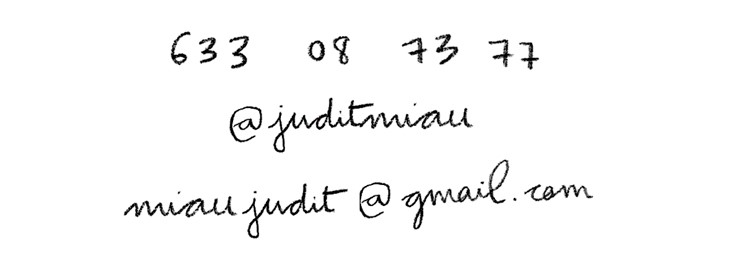 633 08 73 77
@juditmiau
miaujudit@gmail.com